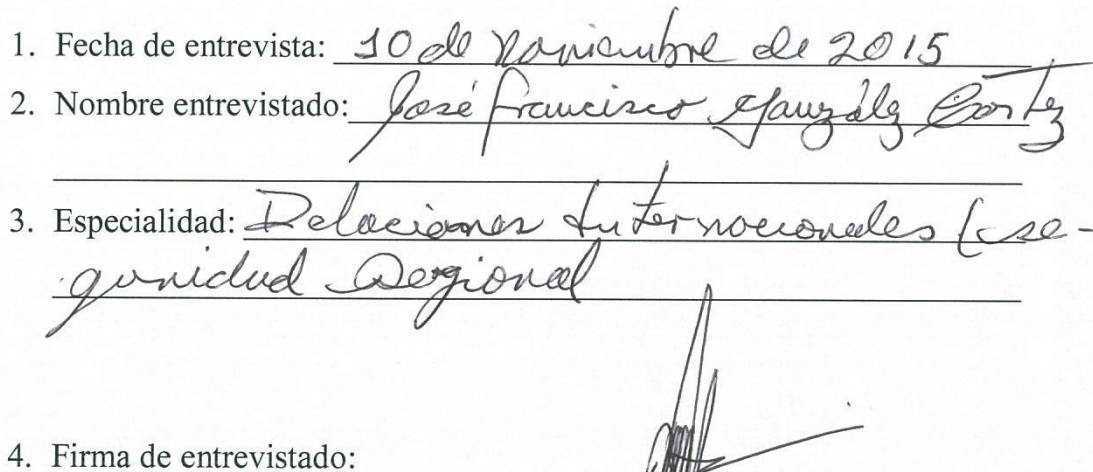 1. Fecha de entrevista: 10 de Noviembre de 2015
2. Nombre entrevistado: José Francisco González Cortez
3. Especialidad: Relaciones Internacionales (se-
guridad Regional
4. Firma de entrevistado: